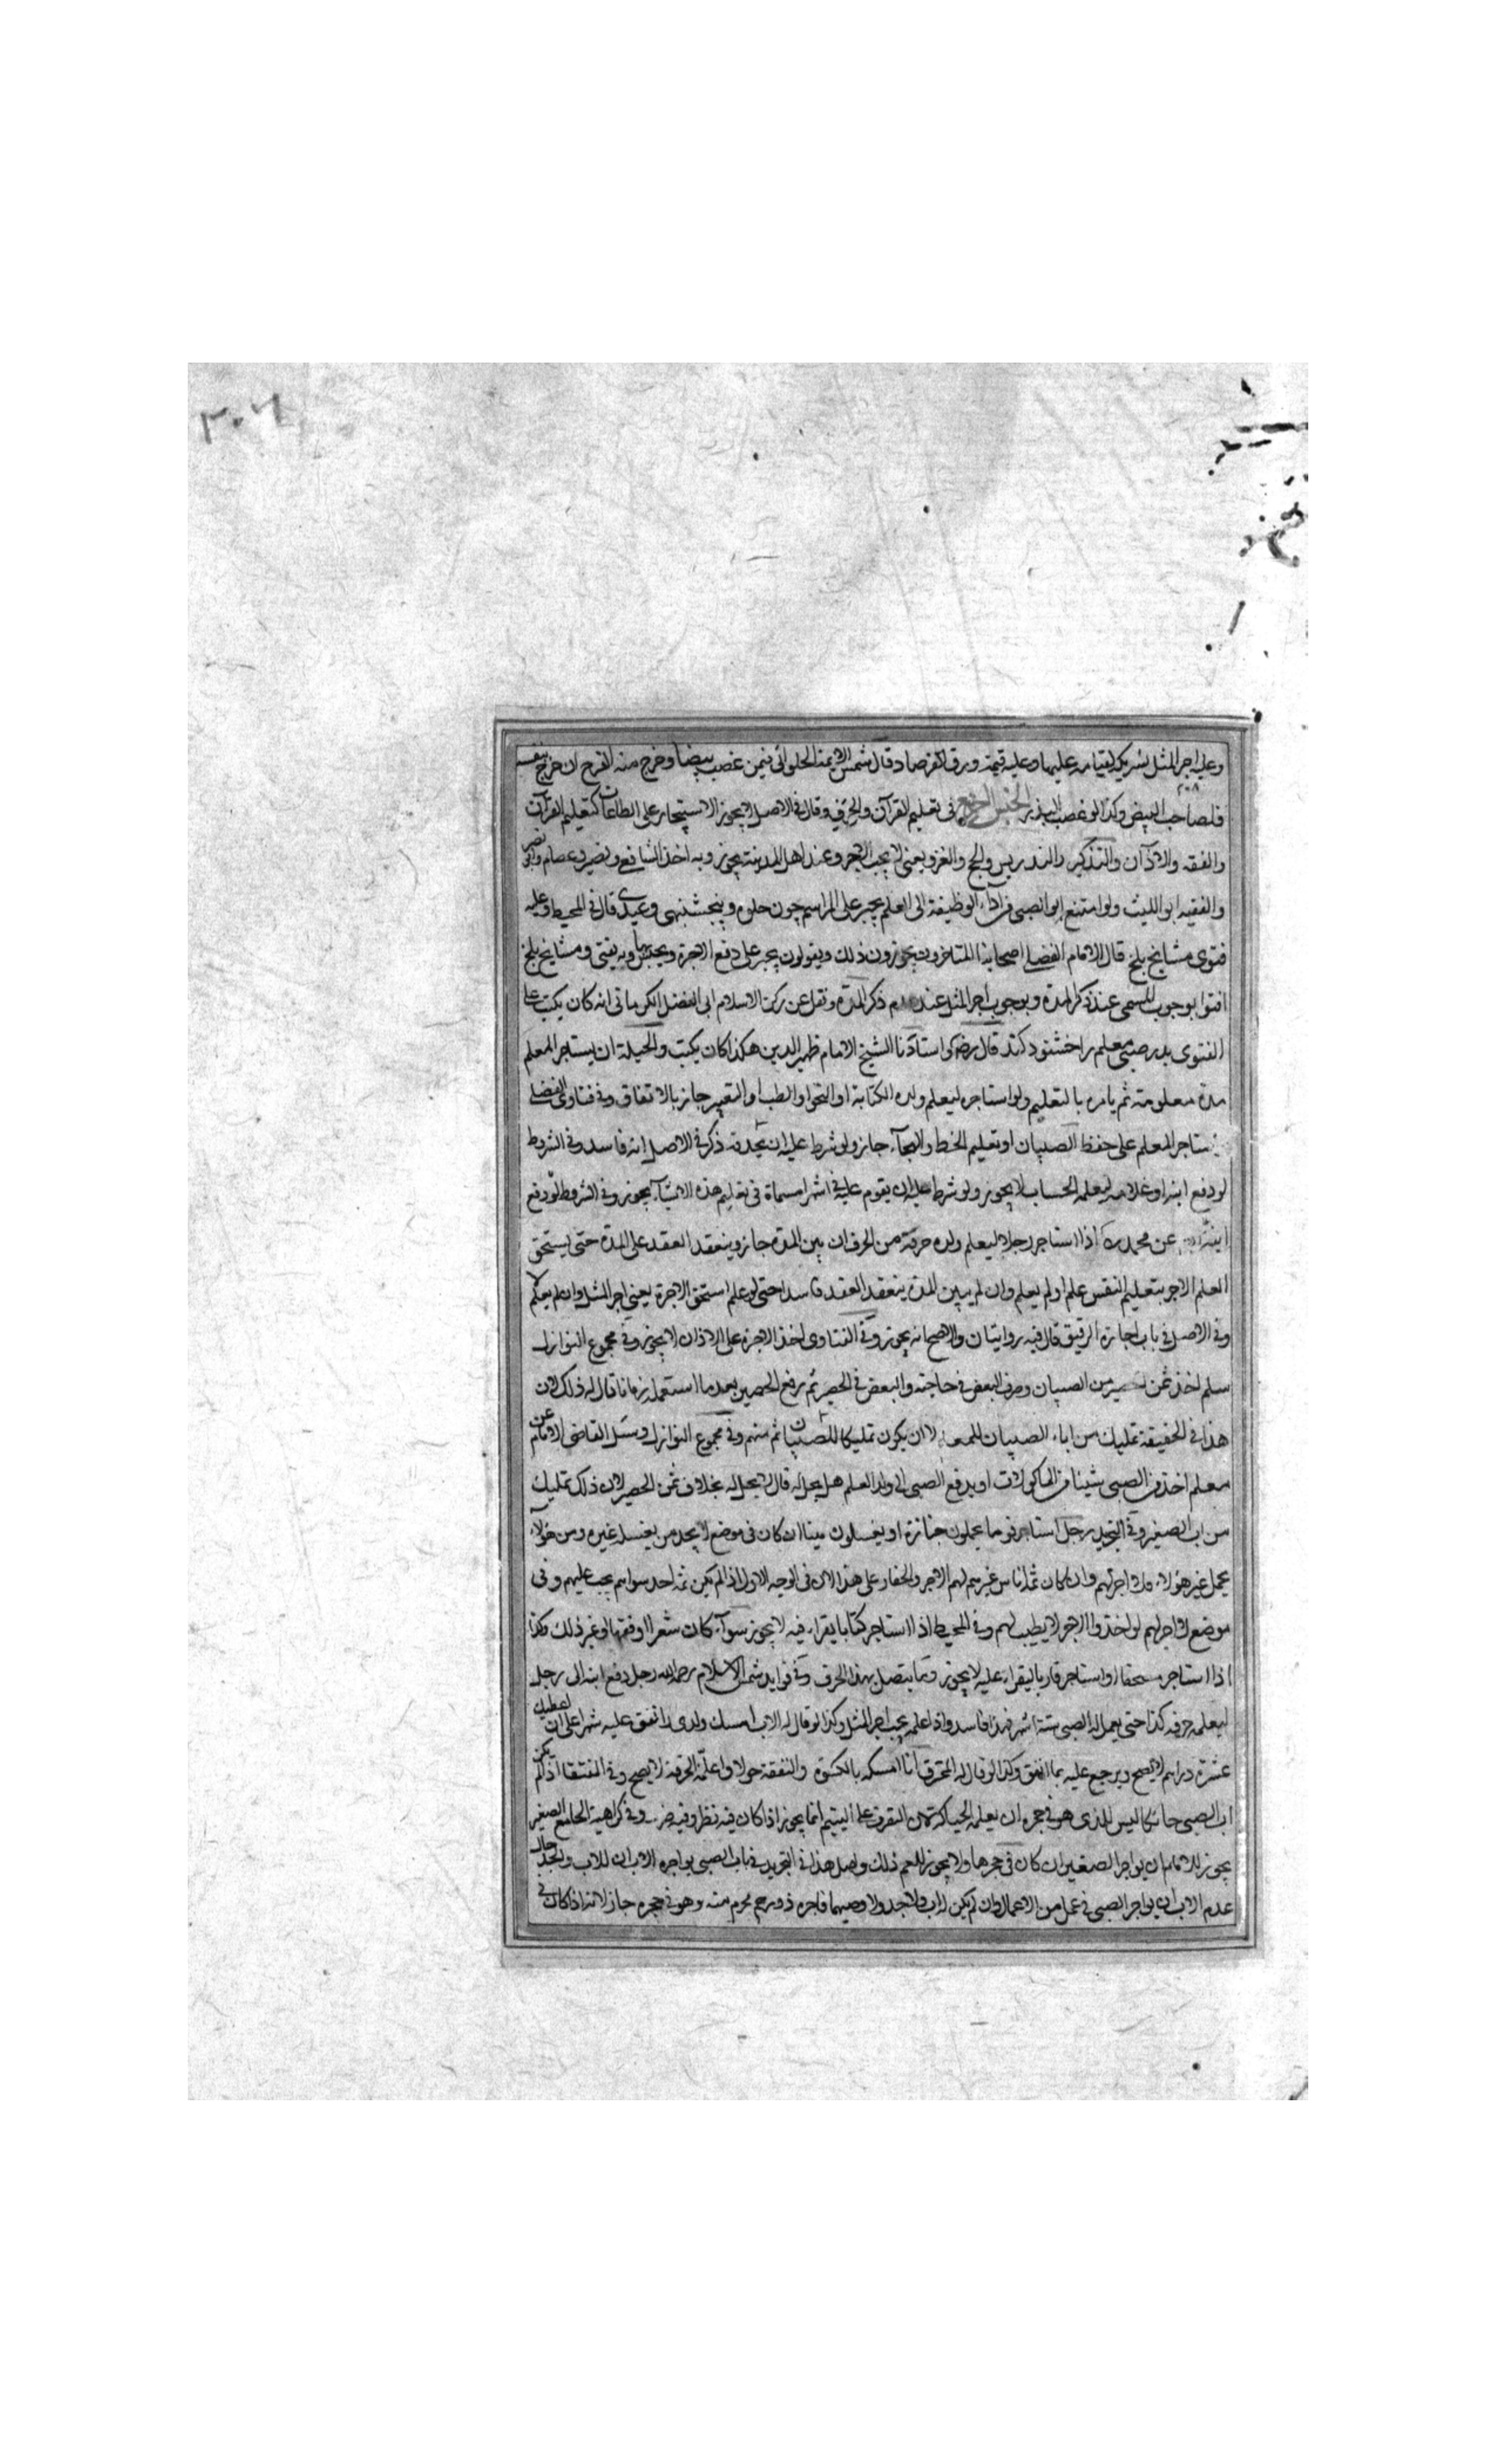 ٣٠٦
وعليه اجر المثل لشريكه لقيامه عليها وعليه قيمة ورق الفرصاد وقال شمس الائمة الحلوائى فيمن غصب بيضا وخرج منه الفرخ ان خرج بنفسه
فلصاحب البيض وكذا لو غصب البذر الجنس الرابع فى تعليم القرآن والحرف وقال فى الاصل لا يجوز الاستيجار على الطاعات كتعليم القرآن
والفقه والاذان والتذكير والتدريس والحج والغزو يعنى لا يجب الاجر وعند اهل المدينة يجوز وبه اخذ الشافعى ونصير وعصام وابو نصر
والفقيه ابو الليث ولو امتنع ابو الصبى من اداء الوظيفة الى المعلم يجبر على المراسم چون حلوه وپنجشنبهى وعيدى قال فى المحيط وعليه
فتوى مشايخ بلخ قال الامام الفضلى اصحابنا المتاخرون يجوزون ذلك ويقولون يجبر على دفع الاجرة ويحبس بها وبه يفتى ومشايخ بلخ
افتوا بوجوب المسمى عند ذكر المدة وبوجوب اجر المثل عند عدم ذكر المدة ونقل عن ركن الاسلام ابى الفضل الكرمانى انه كان يكتب على
الفتوى پدر صبى معلم را خشنود كند قال رضى استاذنا الشيخ الامام ظهير الدين هكذا كان يكتب والحيلة ان يستاجر المعلم
مدة معلومة ثم يامره بالتعليم ولو استاجره ليعلم ولده الكتابة او النحو او الطب او التعبير جاز بالاتفاق وفى فتاوى الفضلى
استاجر المعلم على حفظ الصبيان او تعليم الخط والهجاء جاز ولو شرط عليه ان يحذقه ذكر فى الاصل انه فاسد وفى الشروط
لو دفع ابنه او غلامه ليعلمه الحساب لا يجوز ولو شرط عليه ان يقوم عليه فى اشهر مسماة فى تعليم هذه الاشياء يجوز وفى الشروط لو دفع
ابنه عن محمد اذا استاجر رجلا ليعلم ولده حرفة من الحرف ان بين المدة جاز وينعقد العقد على المدة حتى يستحق
المعلم الاجر بتعليم النفس علم او لم يعلم وان لم يبين المدة ينعقد العقد فاسدا حتى لو علم استحق الاجرة يعنى اجر المثل وان لم يعلم لا
وفى الاصل فى باب اجارة الرقيق قال فيه روايتان والاصح انه يجوز وفى الفتاوى اخذ الاجرة على الاذان لا يجوز وفى مجموع النوازل
معلم اخذ ثمن الحصير من الصبيان وصرف البعض فى حاجته والبعض فى الحصير ثم رفع الحصير بعد ما استعمله زمانا قال له ذلك لان
هذا فى الحقيقة تمليك من اباء الصبيان للمعلم لا ان يكون تمليكا للصبيان ثم منهم وفى مجموع النوازل وسئل القاضى الامام عن
معلم اخذ من الصبى شيئا من الماكولات او يدفع الصبى الى ولد المعلم هل يحل له قال لا يحل له بخلاف ثمن الحصير لان ذلك تمليك
من اب الصغير وفى التجريد رجل استاجر قوما يحملون جنازة او يغسلون ميتا ان كان فى موضع لا يجد من يغسله غيره ومن هؤلاء
يحمل غير هؤلاء فلا اجر لهم وان كان ثمه اناس غيرهم لهم الاجر والحفار على هذا لان فى الوجه الاول اذا لم يكن ثمه احد سواهم يجب عليهم وفى
موضع لا اجر لهم لو اخذوا الاجر لا يطيب لهم وفى المحيط اذا استاجر كتابا يقراء فيه لا يجوز سواء كان شعرا او فقها او غير ذلك وكذا
اذا استاجر مصحفا او استاجر قاريا ليقراء عليه لا يجوز ومما يتصل بهذا الحرف وفى فوايد شمس الاسلام رحمه الله رجل دفع ابنه الى رجل
ليعلمه حرفة كذا حتى يعمل له الصبى ستة اشهر فهذا فاسد واذا علمه يجب اجر المثل وكذا لو قال له الاب امسك ولدى وانفق عليه شهرا على ان اعطيك
عشرة دراهم لا يصح ويرجع عليه بما انفق وكذا لو قال له المحترف انا امسكه بالكسوة والنفقة حولا واعلمه الحرفة لا يصح وفى المنتقى اذا لم يكن
اب الصبى حائكا ليس للذى هو فى حجره ان يعلمه الحياكة لان التصرف على اليتيم انما يجوز اذا كان فيه نظر وفيه ضرر وفى كراهية الجامع الصغير
يجوز للام ان يواجر الصغير ان كان فى حجرها ولا يجوز للعم ذلك واصل هذا فى التجريد فى باب الصبى يواجره الاب ان للاب والجد حال
عدم الاب ان يواجر الصبى فى عمل من الاعمال وان لم يكن له اب ولا جد ولا وصيهما فاجره ذو رحم محرم منه وهو فى حجره جاز لانه اذا كان فى